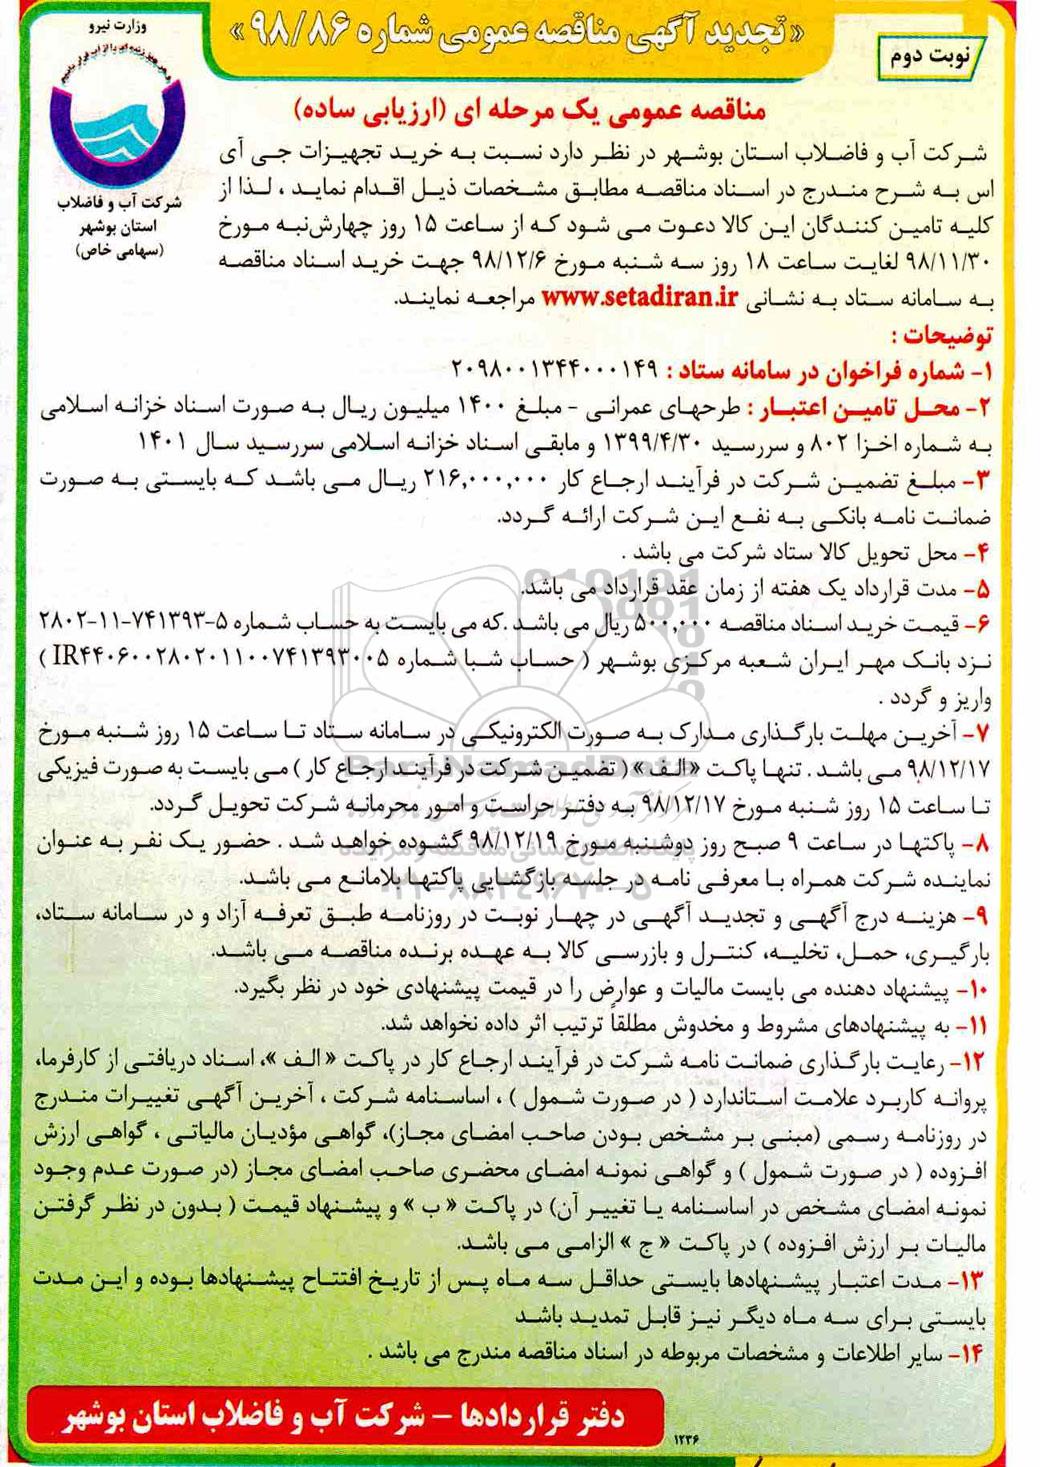 «تجدید آگهی مناقصه عمومی شماره ۹۸/۸۶»
نوبت دوم
وزارت نیرو
شرکت آب و فاضلاب
استان بوشهر
(سهامی خاص)
مناقصه عمومی یک مرحله ای (ارزیابی ساده)
شرکت آب و فاضلاب استان بوشهر در نظر دارد نسبت به خرید تجهیزات جی آی
اس به شرح مندرج در اسناد مناقصه مطابق مشخصات ذیل اقدام نماید ، لذا از
کلیه تامین کنندگان این کالا دعوت می شود که از ساعت ۱۵ روز چهارشنبه مورخ
۹۸/۱۱/۳۰ لغایت ساعت ۱۸ روز سه شنبه مورخ ۹۸/۱۲/۶ جهت خرید اسناد مناقصه
به سامانه ستاد به نشانی www.setadiran.ir مراجعه نمایند.
توضیحات :
۱- شماره فراخوان در سامانه ستاد : ۲۰۹۸۰۰۱۳۴۴۰۰۰۱۴۹
۲- محل تامین اعتبار : طرحهای عمرانی - مبلغ ۱۴۰۰ میلیون ریال به صورت اسناد خزانه اسلامی
به شماره اخزا ۸۰۲ و سررسید ۱۳۹۹/۴/۳۰ و مابقی اسناد خزانه اسلامی سررسید سال ۱۴۰۱
۳- مبلغ تضمین شرکت در فرآیند ارجاع کار ۲۱۶,۰۰۰,۰۰۰ ریال می باشد که بایستی به صورت
ضمانت نامه بانکی به نفع این شرکت ارائه گردد.
۴- محل تحویل کالا ستاد شرکت می باشد .
۵- مدت قرارداد یک هفته از زمان عقد قرارداد می باشد.
۶- قیمت خرید اسناد مناقصه ۵۰۰,۰۰۰ ریال می باشد .که می بایست به حساب شماره ۵-۷۴۱۳۹۳-۱۱-۲۸۰۲
نزد بانک مهر ایران شعبه مرکزی بوشهر ( حساب شبا شماره IR۴۴۰۶۰۰۲۸۰۲۰۱۱۰۰۷۴۱۳۹۳۰۰۵ )
واریز و گردد .
۷- آخرین مهلت بارگذاری مدارک به صورت الکترونیکی در سامانه ستاد تا ساعت ۱۵ روز شنبه مورخ
۹۸/۱۲/۱۷ می باشد . تنها پاکت «الف» ( تضمین شرکت در فرآیند ارجاع کار ) می بایست به صورت فیزیکی
تا ساعت ۱۵ روز شنبه مورخ ۹۸/۱۲/۱۷ به دفتر حراست و امور محرمانه شرکت تحویل گردد.
۸- پاکتها در ساعت ۹ صبح روز دوشنبه مورخ ۹۸/۱۲/۱۹ گشوده خواهد شد . حضور یک نفر به عنوان
نماینده شرکت همراه با معرفی نامه در جلسه بازگشایی پاکتها بلامانع می باشد.
۹- هزینه درج آگهی و تجدید آگهی در چهار نوبت در روزنامه طبق تعرفه آزاد و در سامانه ستاد،
بارگیری، حمل، تخلیه، کنترل و بازرسی کالا به عهده برنده مناقصه می باشد.
۱۰- پیشنهاد دهنده می بایست مالیات و عوارض را در قیمت پیشنهادی خود در نظر بگیرد.
۱۱- به پیشنهادهای مشروط و مخدوش مطلقاً ترتیب اثر داده نخواهد شد.
۱۲- رعایت بارگذاری ضمانت نامه شرکت در فرآیند ارجاع کار در پاکت « الف »، اسناد دریافتی از کارفرما،
پروانه کاربرد علامت استاندارد ( در صورت شمول ) ، اساسنامه شرکت ، آخرین آگهی تغییرات مندرج
در روزنامه رسمی (مبنی بر مشخص بودن صاحب امضای مجاز)، گواهی مؤدیان مالیاتی ، گواهی ارزش
افزوده ( در صورت شمول ) و گواهی نمونه امضای محضری صاحب امضای مجاز (در صورت عدم وجود
نمونه امضای مشخص در اساسنامه یا تغییر آن) در پاکت « ب » و پیشنهاد قیمت ( بدون در نظر گرفتن
مالیات بر ارزش افزوده ) در پاکت « ج » الزامی می باشد.
۱۳- مدت اعتبار پیشنهادها بایستی حداقل سه ماه پس از تاریخ افتتاح پیشنهادها بوده و این مدت
بایستی برای سه ماه دیگر نیز قابل تمدید باشد
۱۴- سایر اطلاعات و مشخصات مربوطه در اسناد مناقصه مندرج می باشد .
دفتر قراردادها – شرکت آب و فاضلاب استان بوشهر
۱۲۳۶